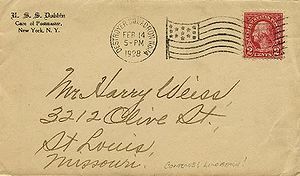 U. S. S. Dobbin
Care of Postmaster,
New York, N. Y.
FEB 14
5-PM
1928
2 CENTS 2
Mr Harry Weiss
3212 Olive St.
St Louis
Missouri.